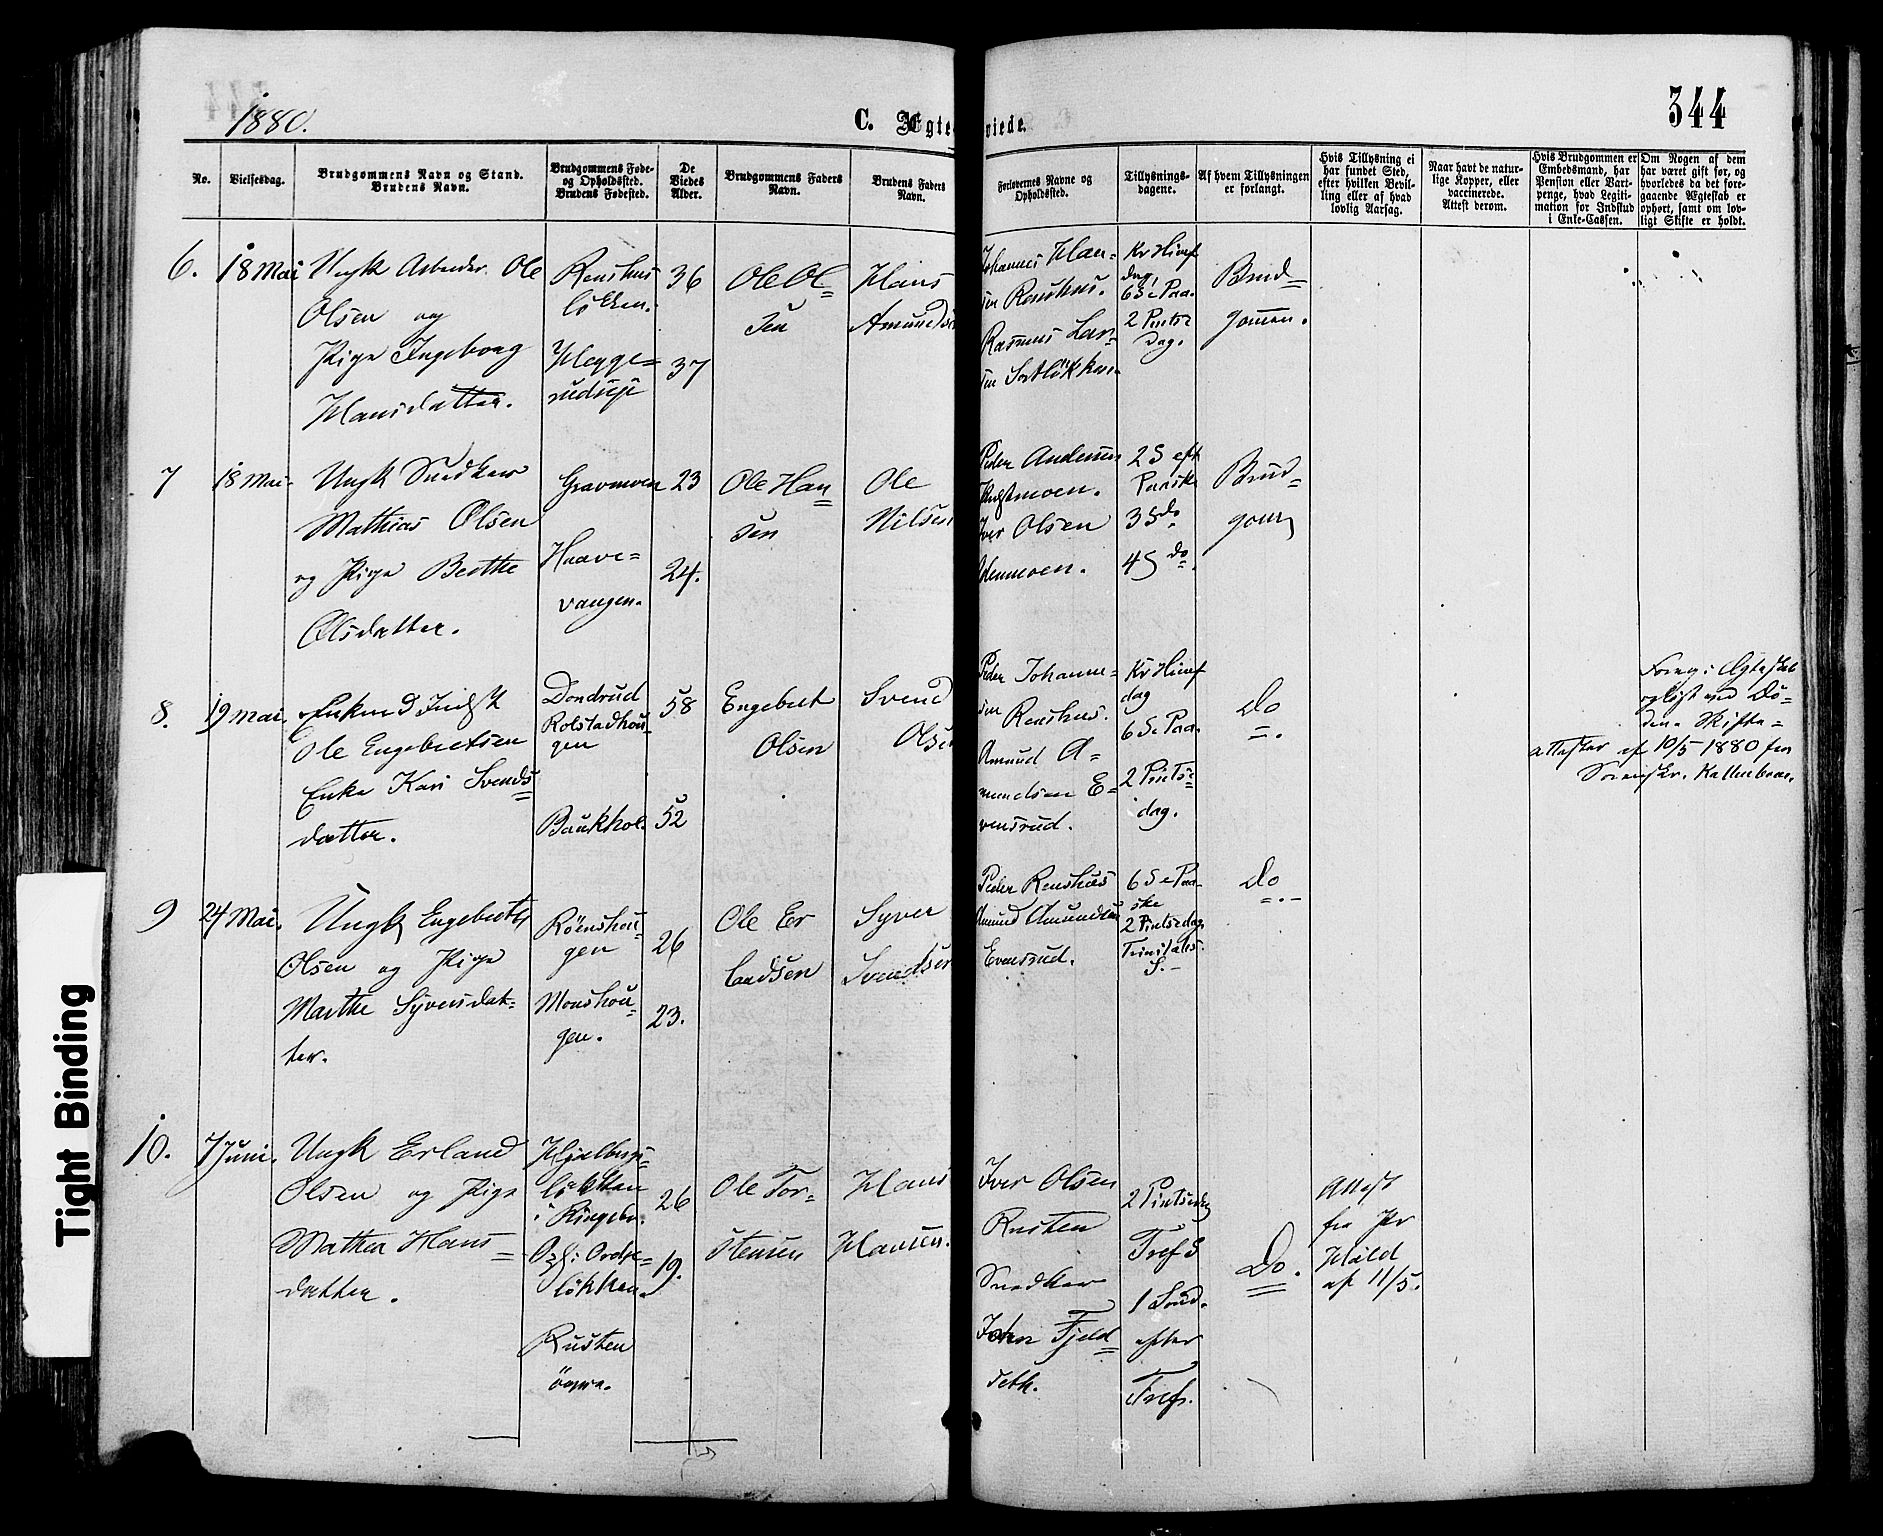 1880.
C. Ægteviede.
344
No.
Vielsesdag.
Brudgommens Navn og Stand.
Brudens Navn.
Brudgommens Føde-
og Opholdssted.
Brudens Fødested.
De
Viedes
Alder.
Brudgommens Faders
Navn.
Brudens Faders
Navn.
Forlovernes Navne og
Opholdssted.
Tillysnings-
dagene.
Af hvem Tillysningen
er forlangt.
Hvis Tillysning ei
har fundet Sted,
efter hvilken Bevil-
ling eller af hvad
lovlig Aarsag.
Naar havt de natur-
lige Kopper, eller
vaccinerede.
Attest derom.
Hvis Brudgommen er
Embedsmand, har
Pension eller Vart-
penge, hvad Legiti-
mation for Indskud
i Enke-Cassen.
Om Nogen af dem
har været gift før, og
hvorledes da det fore-
gaaende Ægteskab er
ophørt, samt om lov-
ligt Skifte er holdt.
6.
18 Mai
Ungk Arbeider Ole
Olsen og
Pige Ingeborg
Hansdatter.
Renshus
løkken.
Heggerudseje
36
37
Ole Ol=
sen
Hans
Amunds
Johannes Han-
sen Renshus.
Rasmus Lar-
sen Sortløkken
Kr Himf
dag,
6 S e Paa.
2 Pintse
Dag.
Brud=
gommen.
7
18 Mai
Ungk Snedker
Mathias Olsen
og Pige Berthe
Olsdatter.
Gravmoen
Haave=
vangen.
23
24.
Ole Han
sen
Ole
Nilsen
Peder Andersen
moen.
Iver Olsen
moen.
2 S eft
Paaske
3 S do
4 S do.
Brud=
gom
8.
19 Mai.
Enkemd Indst
Ole Engebretsen
Enke Kari Svends=
datter.
Dondrud
Rolstadhou=
gen
Baukhol.
58
52
Engebret
Olsen
Svend
Olsen
Peder Johanne=
sen Renshus.
Amund A=
mundsen E=
vensrud.
Kr Himf
dag
6 S e Paa.
2 Pintse=
dag.
Do
Foreg: Ægteskab
opløst ved Dø-
den. Skifte=
attester af 10/5 1880 fra
Sorenskr.
9
24 Mai.
Ungk Engebret
Olsen og Pige
Marthe Syversdat=
ter.
Rønshou=
gen
Monshou=
gen.
26
23.
Ole Er
landsen
Syver
Svendsen
Peder Renshus
Amund Amundsen
Evensrud.
6 S e Paa-
ske
2 Pintsedag
Trinitatis
S.
Do
10.
7 Juni.
Ungk Erland
Olsen og Pige
Mathea Hans=
datter.
løkken
i Ringebu.
løkken.
Rusten
26
19.
Ole Tor=
stensen
Hans
Hansen.
Iver Olsen
Rusten
Snedker
Johan Fjeld=
seth.
2 Pintsedag
Tref S
1 Sønd.
efter
Tref.
Do.
Attest
fra Pr
Hald
af 11/5.
Tight Binding